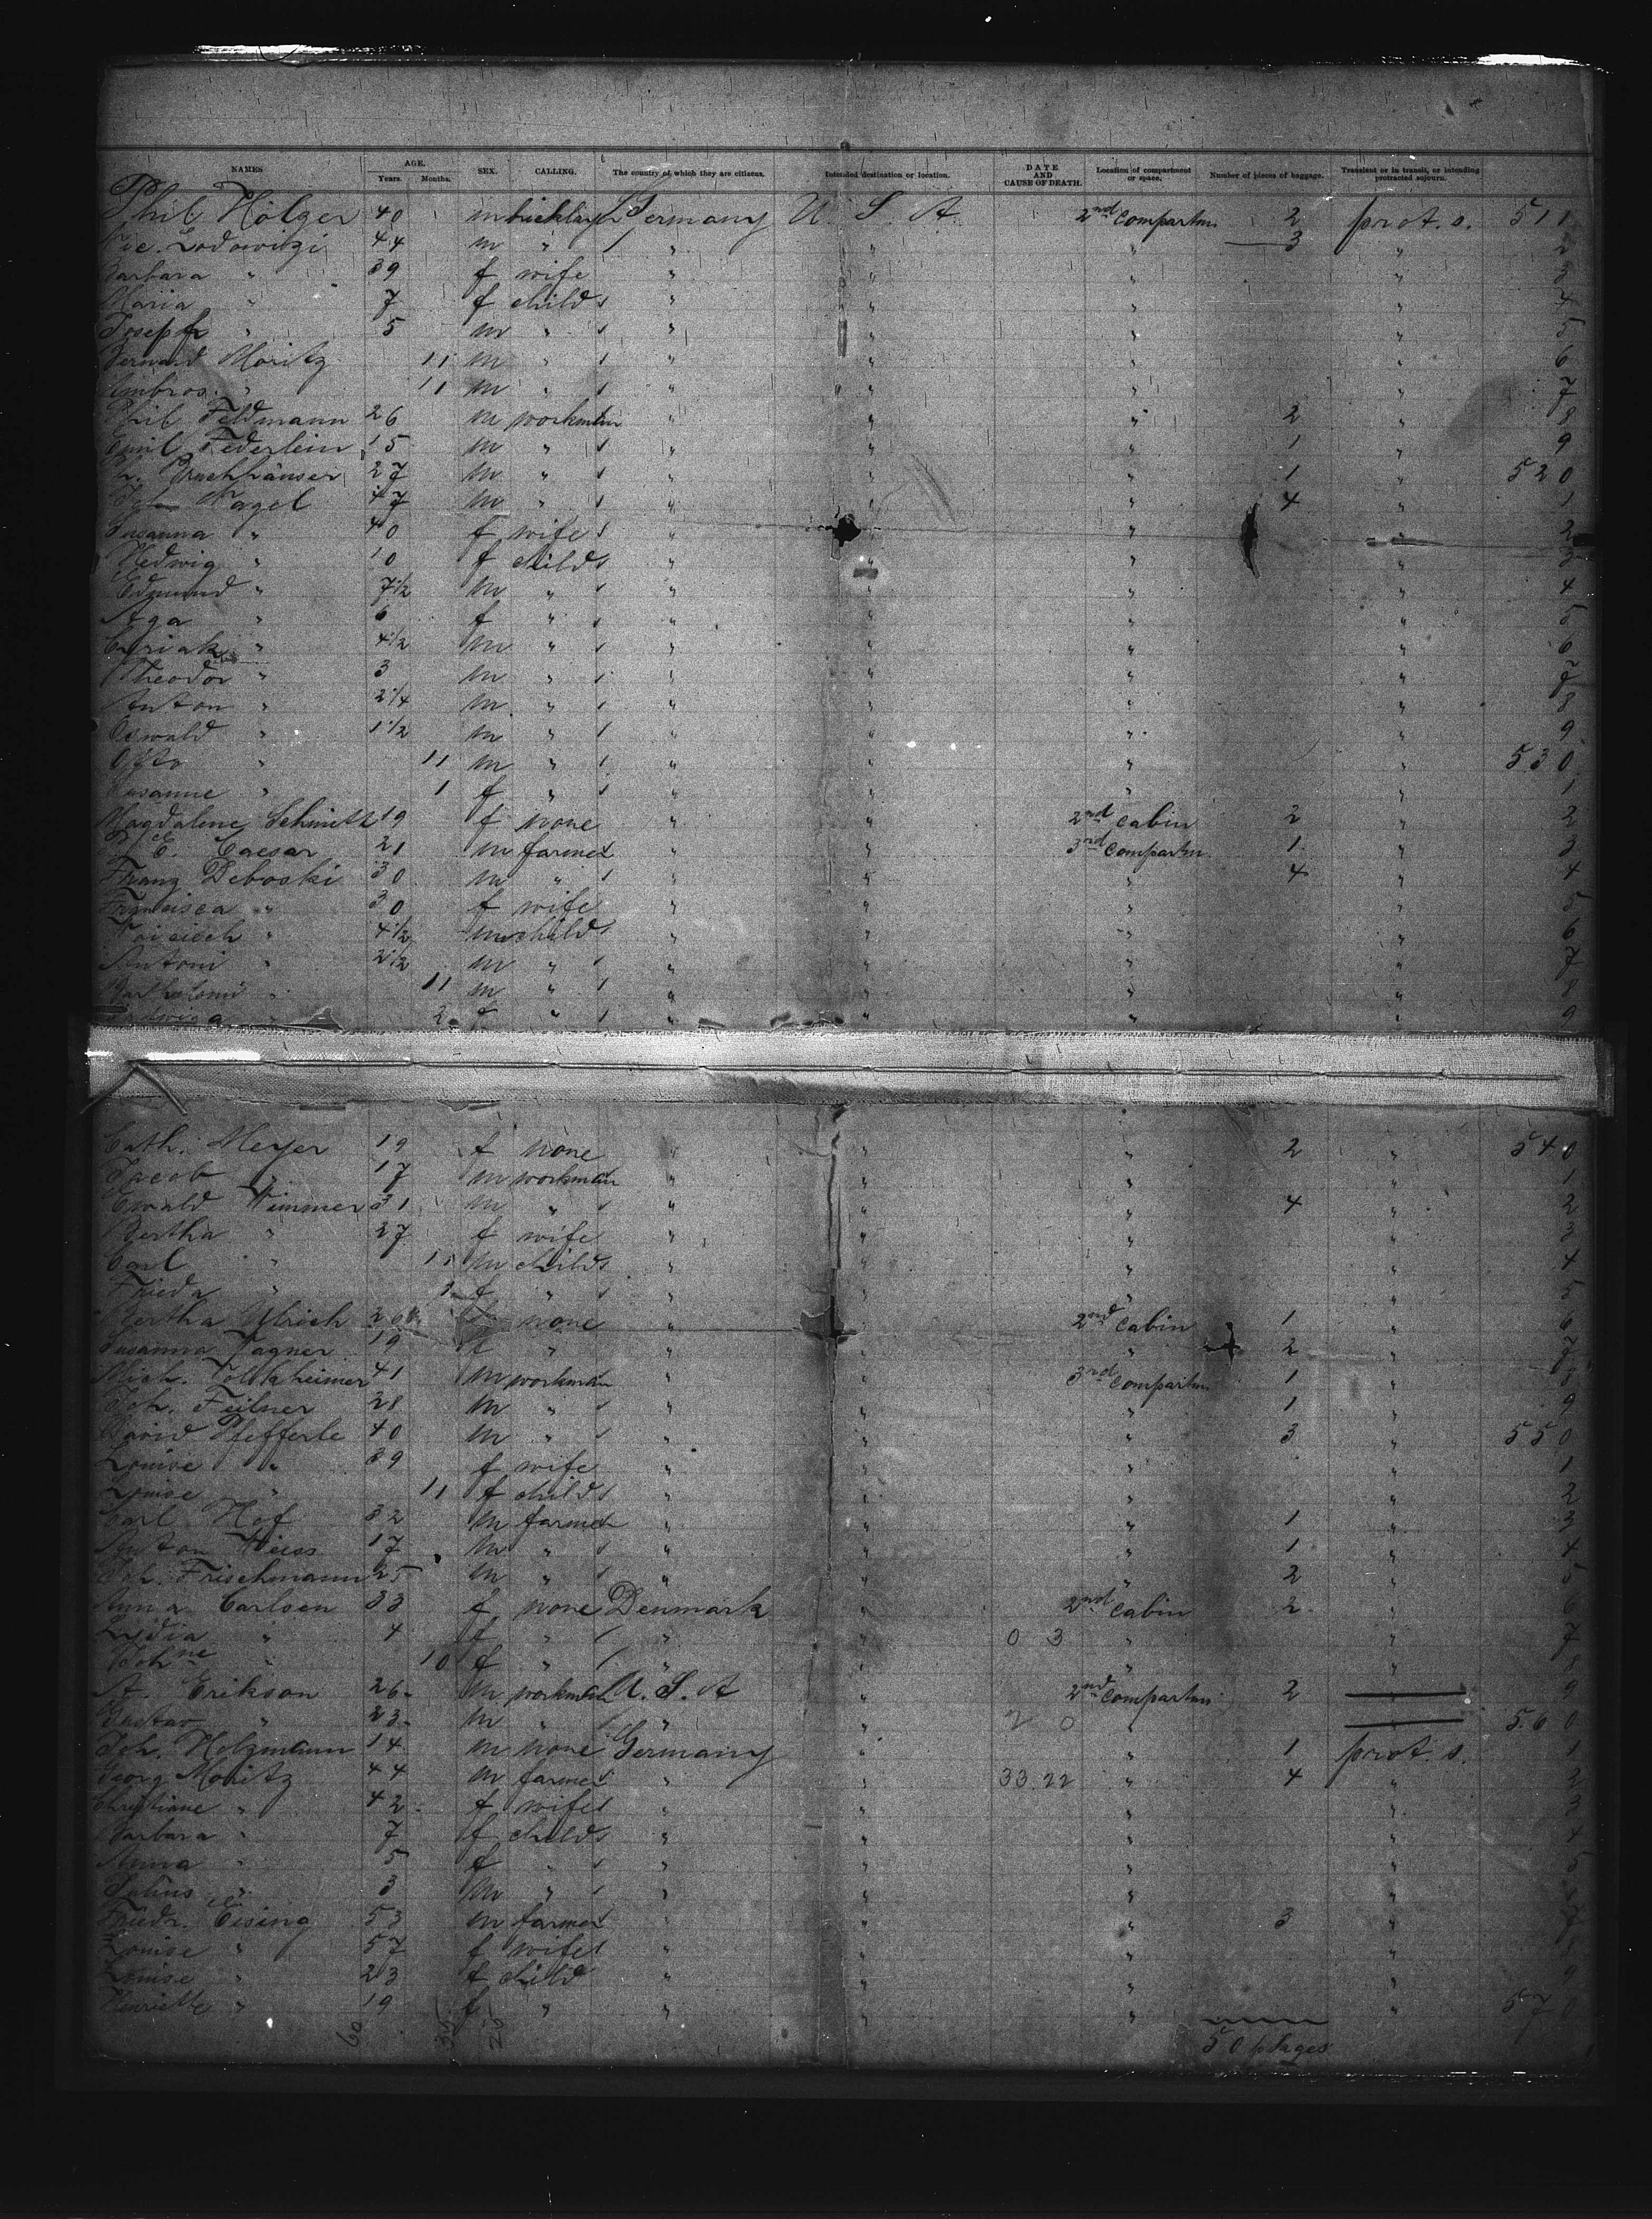 NAMES AGE. Years. Months. SEX. CALLING. The country of which they are citizens. Intended destination or location. DATE AND CAUSE OF DEATH. Location of compartment or space. Number of pieces of baggage. Transient or in transit, or intending protracted sojourn.
Phil Holzer 40 m bricklayer Germany U. S. A. 2nd Compartm. 2 prot. s. 511
Nic. Lodowizi 44 m " " " " 3 " 2
Barbara " 39 f wife " " " " 3
Maria " 7 f child " " " " 4
Joseph " 5 m " " " " " 5
Bernard Moritz 11 m " " " " " 6
Ambros. " 11 m " " " " " 7
Phil Feldmann 26 m workman " " " 2 " 8
Emil Federlein 15 m " " " " 1 " 9
27 m " " " " 1 " 520
Nagel 47 m " " " " 4 " 1
Susanna " 40 f wife " " " " 2
Hedwig " 10 f child " " " " 3
Edmund " 7 1/2 m " " " " " 4
Aga " 6 f " " " " " 5
Cyriak " 4 1/2 m " " " " " 6
Theodor " 3 m " " " " " 7
Anton " 2 1/4 m " " " " " 8
Oswald " 1 1/2 m " " " " " 9
Otto " 11 m " " " " " 530
Susanne " 1 f " " " " " 1
Magdalene Schmitt 19 f none " " 2nd Cabin 2 " 2
E. Caesar 21 m farmer " " 3rd Compartm. 1 " 3
Franz Deboski 30 m " " " " 4 " 4
Francisca " 30 f wife " " " " 5
" 4 1/2 m child " " " " 6
Antoni " 2 1/2 m " " " " " 7
" 11 m " " " " " 8
" 2 f " " " " " 9
Cath. Meyer 19 f none " " " 2 " 540
Jacob " 17 m workman " " " " 1
Ewald Wimmer 31 m " " " " 4 " 2
Bertha " 27 f wife " " " " 3
Carl " 11 m child " " " " 4
Frieda " f " " " " " 5
Bertha Ulrich 20 none " " 2nd Cabin 1 " 6
Susanna Wagner 19 f " " " " 2 " 7
Mich. 41 m workman " " 3rd Compartm 1 " 8
Joh. Feilner 28 m " " " " 1 " 9
David Pfefferle 40 m " " " " 3 " 550
Louise " 39 f wife " " " " 1
Louise " 11 f child " " " " 2
Carl Hof 32 m farmer " " " 1 " 3
Anton Weiss 17 m " " " " 1 " 4
Joh. Frischmann 25 m " " " " 2 " 5
Anna Carlsen 33 f none Denmark " 2nd Cabin 2 " 6
Lydia " 4 f " " " 0 3 " " 7
Johne " 10 f " " " " " 8
A. Erikson 26 m workman U. S. A " 2nd Compartm 2 " 9
Gustav " 23 m " " " 2 0 " " 560
Joh. Holzmann 14 m none Germany " " 1 prot. s. 1
Georg Moritz 44 m farmer " " 33.22 " 4 " 2
Christiane " 42 f wife " " " " 3
Barbara " 7 f child " " " " 4
Anna " 5 f " " " " " 5
Julius " 3 m " " " " " 6
Friedr. Eising 53 m farmer " " " 3 " 7
Louise " 57 f wife " " " " 8
Louise " 23 f child " " " " 9
Henriette " 19 f " " " " " 570
60 35 25